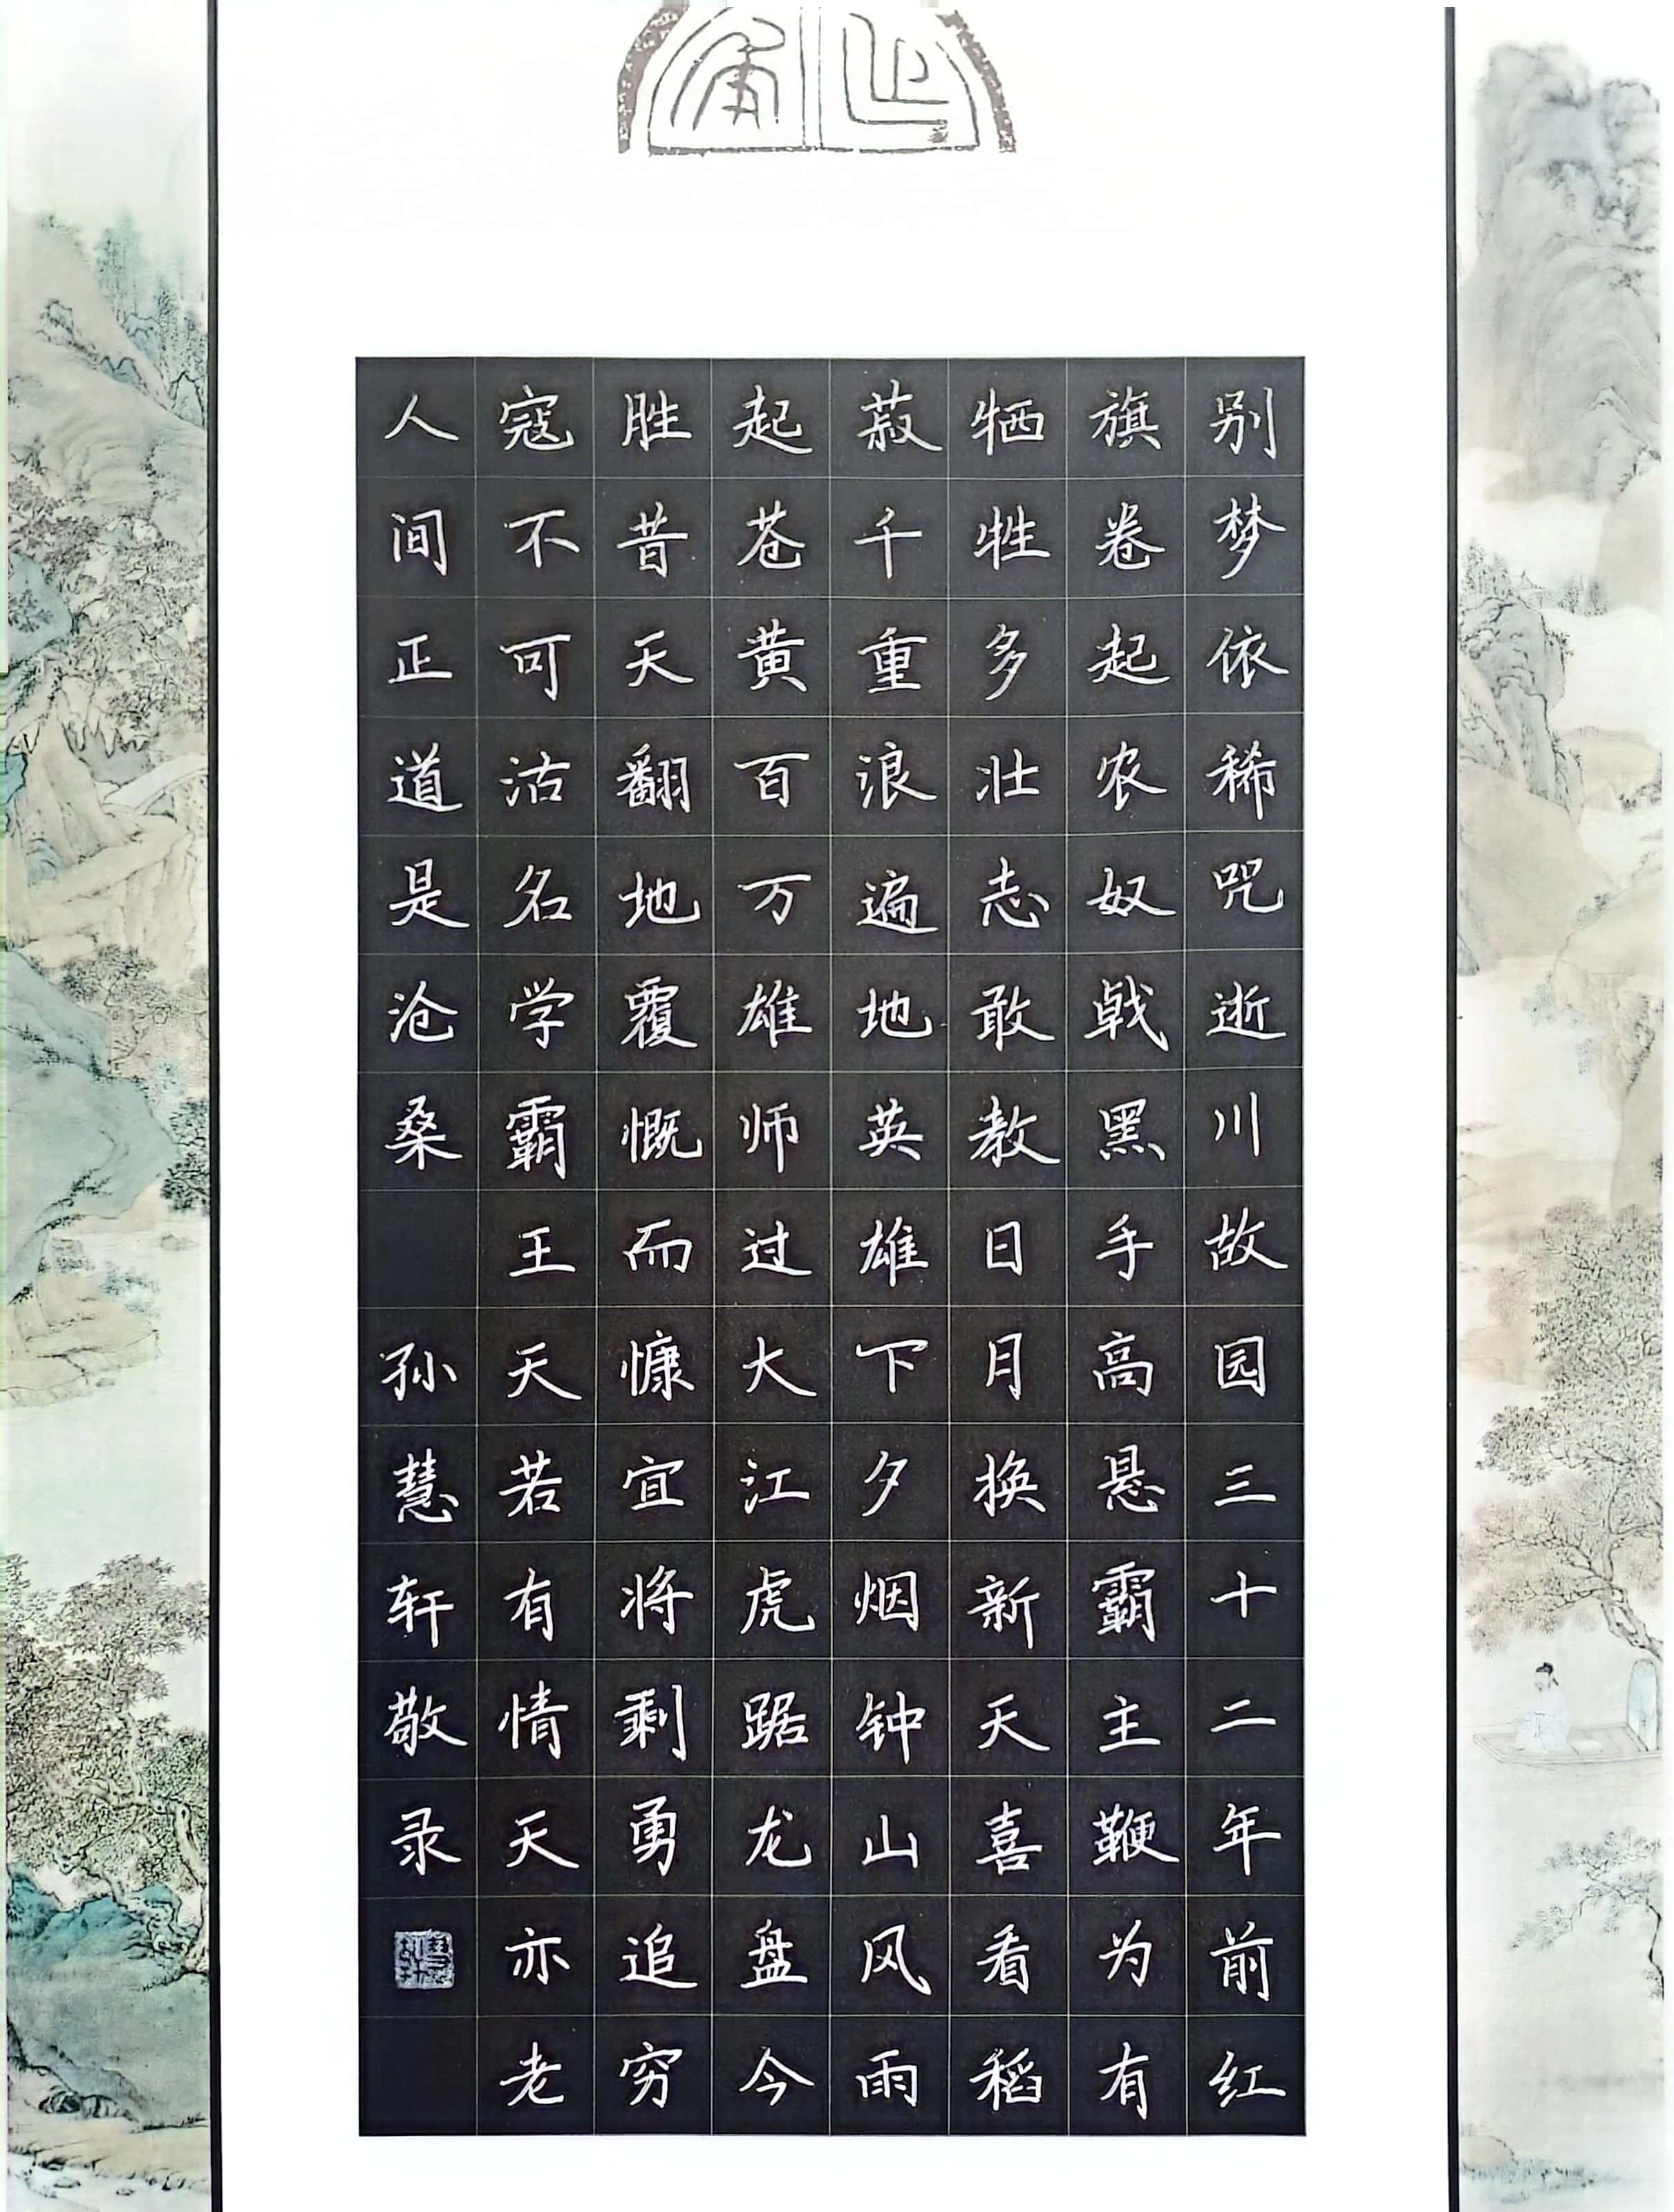 别梦依稀咒逝川故园三十二年前红
旗卷起农奴戟黑手高悬霸主鞭为有
牺牲多壮志敢教日月换新天喜看稻
菽千重浪遍地英雄下夕烟钟山风雨
起苍黄百万雄师过大江虎踞龙盘今
胜昔天翻地覆慨而慷宜将剩勇追穷
寇不可沽名学霸王天若有情天亦老
人间正道是沧桑 孙慧轩敬录